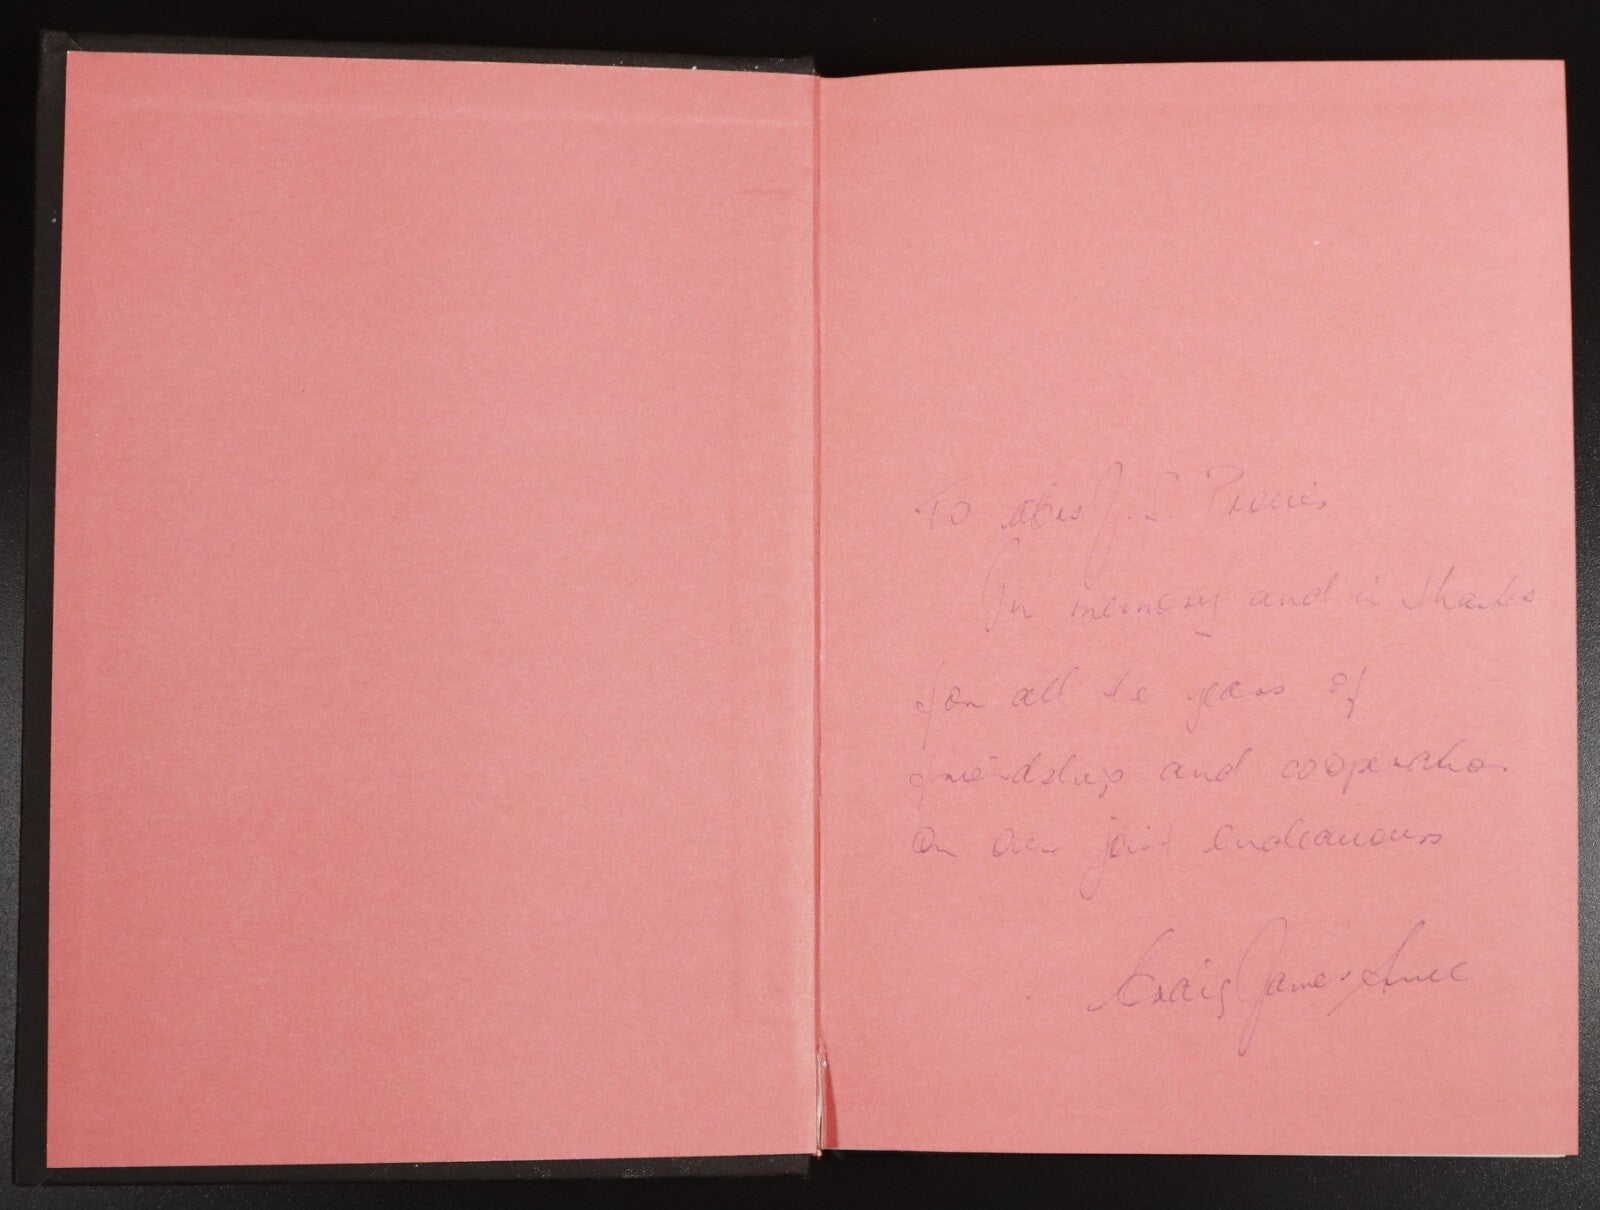 To Miss J. S. Provis
In memory and in thanks
for all the years of
friendship and cooperation
on our joint endeavours
Craig James